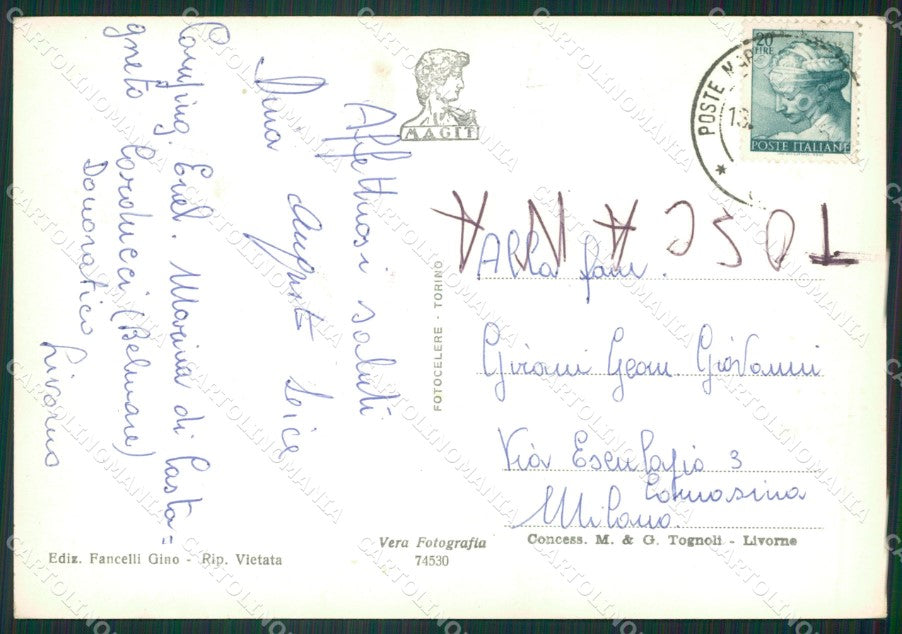 Affettuosi saluti
Dina Augusto
Camping Enel. Marina di Casta=
gneto Carducci (Belmare)
Donoratico Livorno
MAGIT
20 LIRE
POSTE ITALIANE
POSTE
TOSCANA
FOTOCELERE - TORINO
Alla fam.
Gean. Giovanni
Via Esculapio 3
Comasina
Milano.
Vera Fotografia
74530
Concess. M. & G. Tognoli - Livorne
Ediz. Fancelli Gino - Rip. Vietata
CARTOLINOMANIA